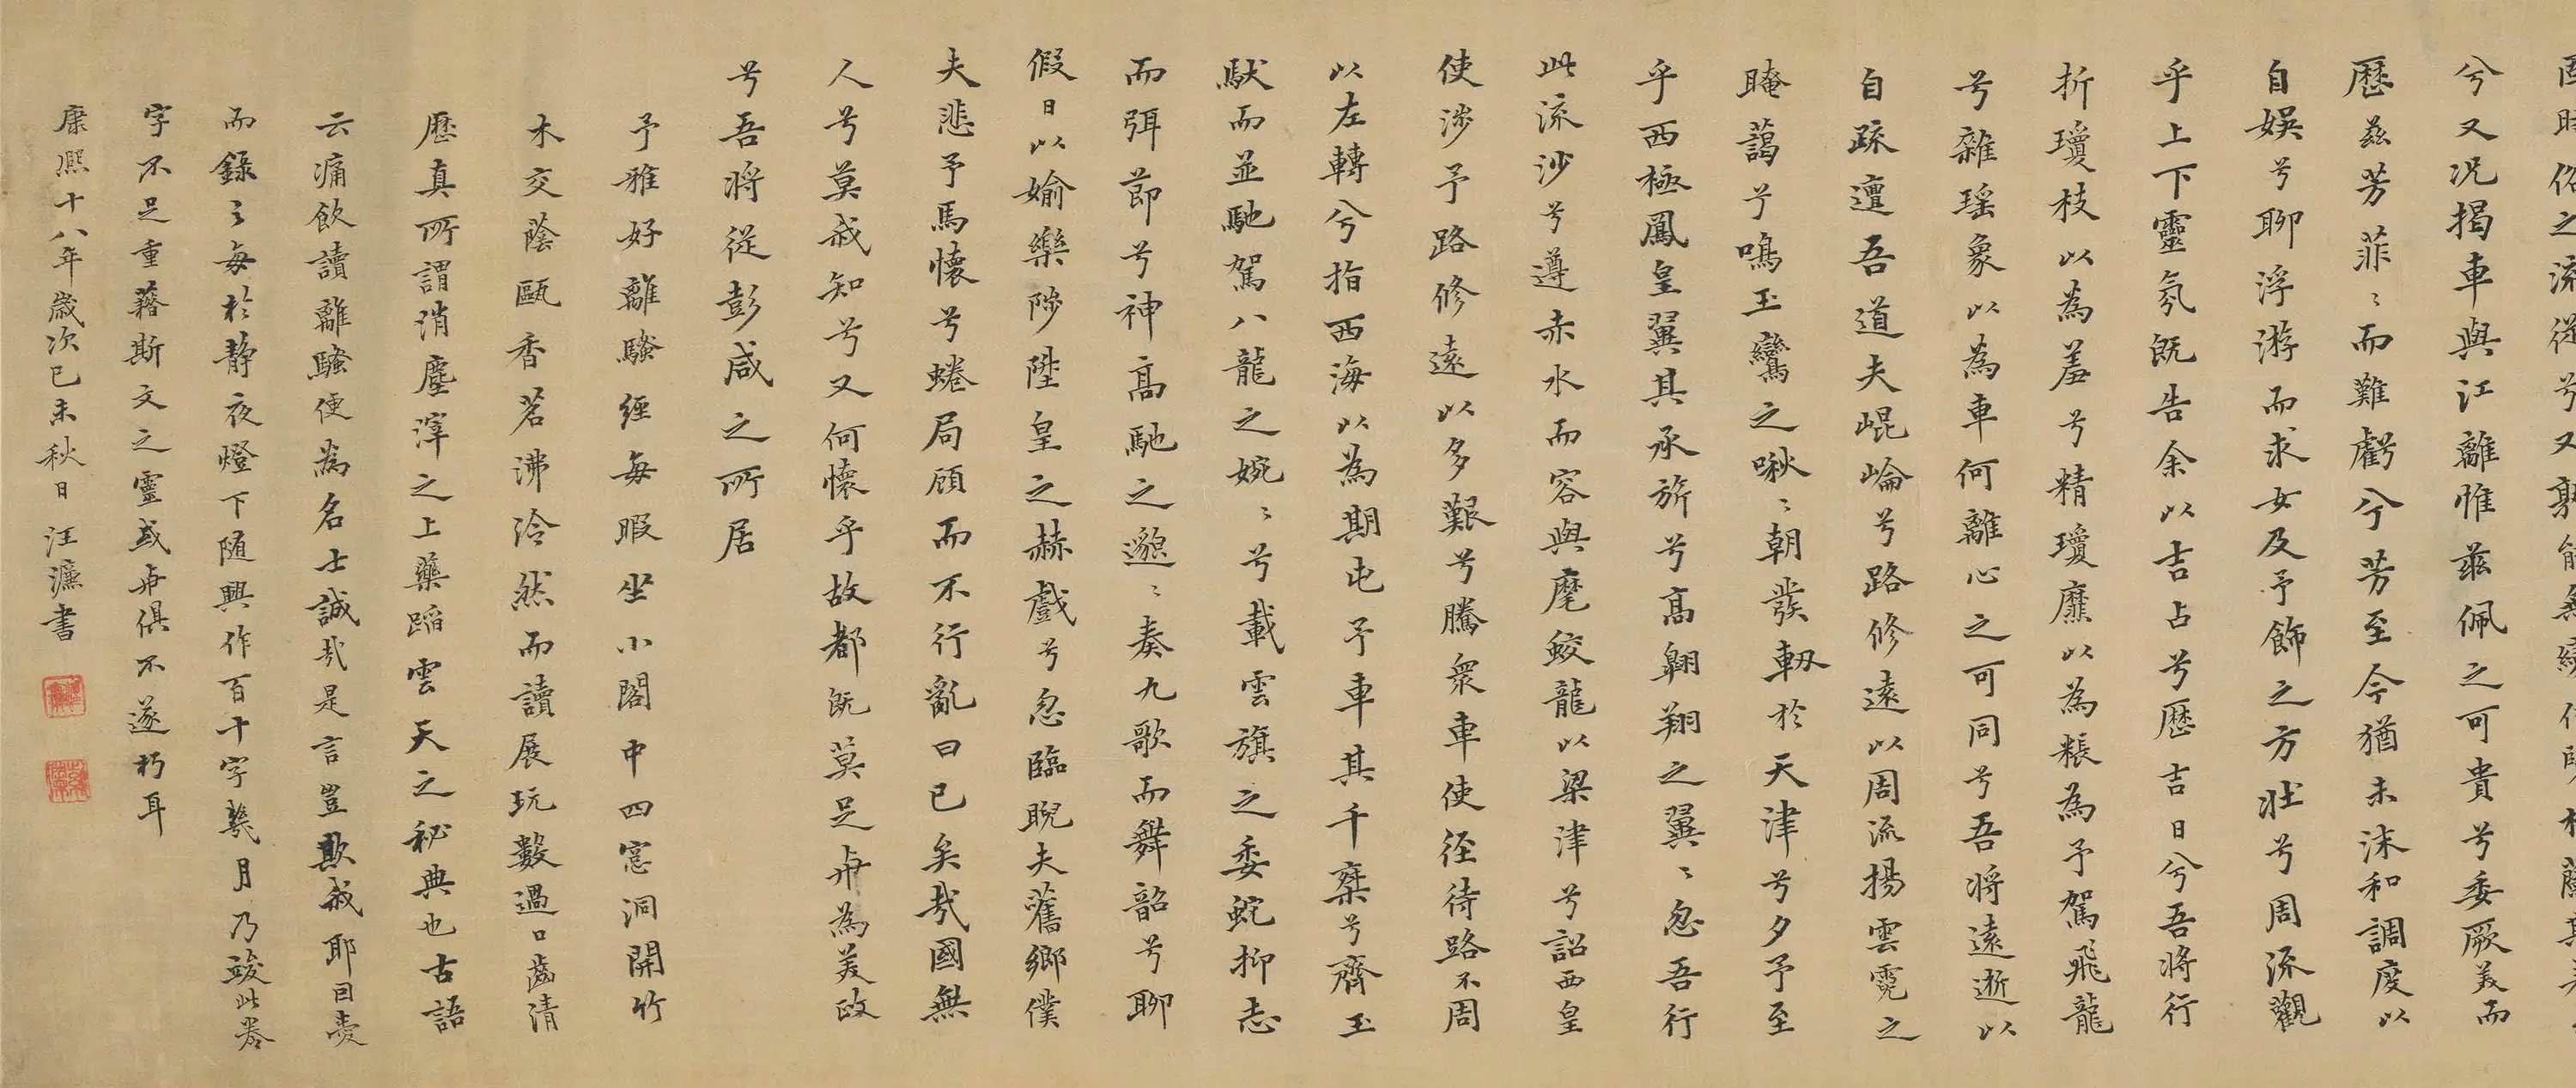 時俗之流從兮又孰能無
兮又況揭車與江離惟茲佩之可貴兮委厥美而
歷茲芳菲〻而難虧兮芳至今猶未沬和調度以
自娛兮聊浮游而求女及予飾之方壯兮周流觀
乎上下靈氛旣告余以吉占兮歷吉日兮吾將行
折瓊枝以為羞兮精瓊爢以為粻為予駕飛龍
兮雜瑤象以為車何離心之可同兮吾將遠逝以
自疏邅吾道夫崐崘兮路修遠以周流揚雲霓之
晻藹兮鳴玉鸞之啾〻朝發軔於天津兮夕予至
乎西極鳳皇翼其承旂兮高翶翔之翼〻忽吾行
此流沙兮遵赤水而容與麾蛟龍以梁津兮詔西皇
使涉予路修遠以多艱兮騰衆車使徑待路不周
以左轉兮指西海以為期屯予車其千椉兮齊玉
軑而並馳駕八龍之婉〻兮載雲旗之委蛇抑志
而弭節兮神高馳之邈〻奏九歌而舞韶兮聊
假日以媮樂陟陞皇之赫戲兮忽臨睨夫舊鄉僕
夫悲予馬懷兮蜷局顧而不行亂曰已矣哉國無
人兮莫我知兮又何懷乎故都旣莫足與為美政
兮吾將從彭咸之所居
予雅好離騷經每暇坐小閣中四窓洞開竹
木交蔭甌香茗沸泠然而讀展玩數過口齒清
歷真所謂消塵滓之上藥蹈雲天之秘典也古語
云痛飲讀離騷便為名士誠哉是言豈欺我耶曰
而錄之每於靜夜燈下隨興作百十字幾月乃竣此卷
字不足重藉斯文之靈或與俱不遂朽耳
康熙十八年歲次己未秋日汪濂書